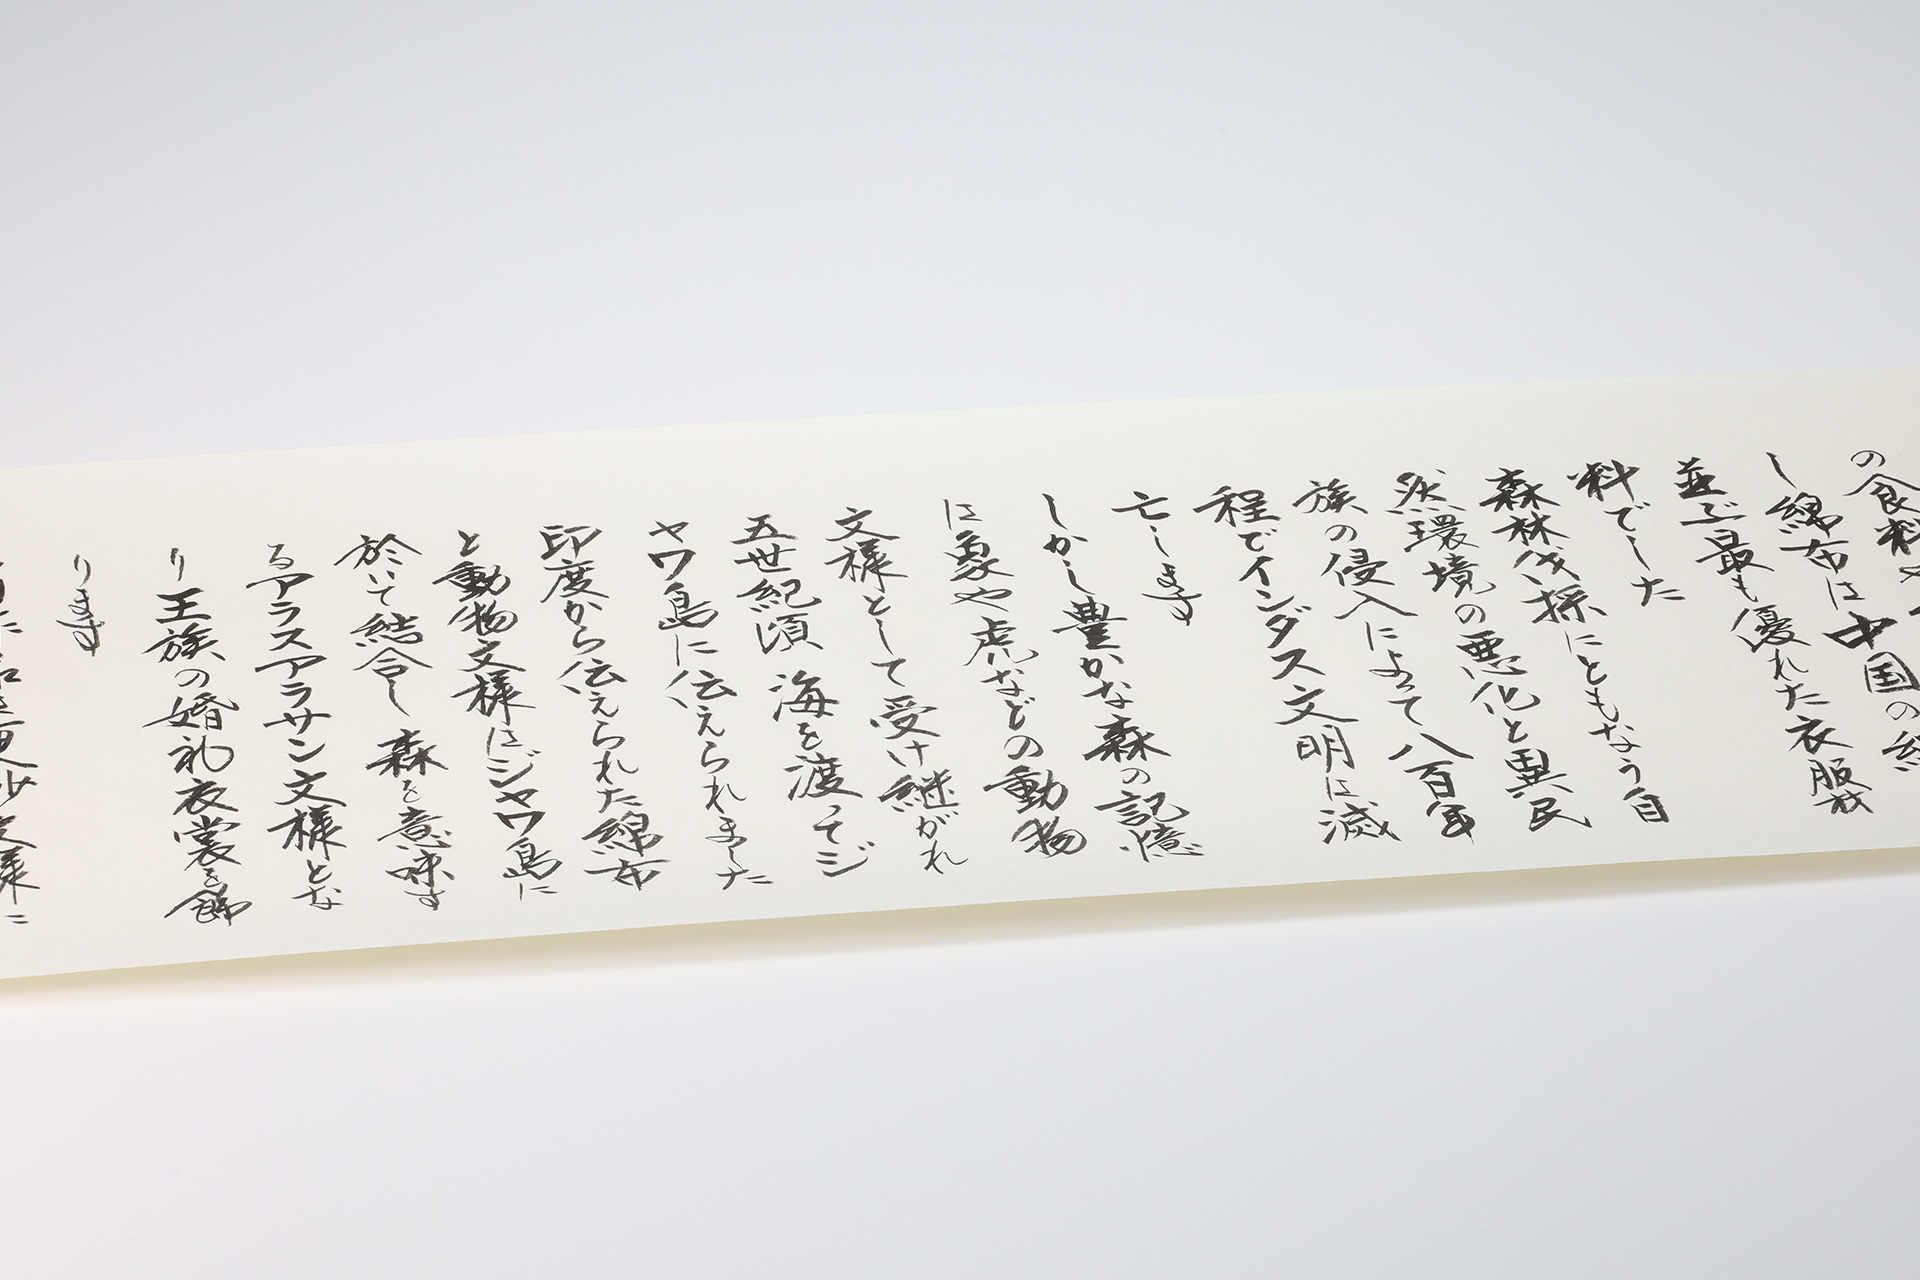 の食料や
し綿布は中国の絹
並ぶ最も優れた衣服材
料でした
森林伐採にともなう自
然環境の悪化と異民
族の侵入によって八百年
程でインダス文明は滅
亡します
しかし豊かな森の記憶
は象や虎などの動物
文様として受け継がれ
五世紀頃 海を渡ってジ
ャワ島に伝えられました
印度から伝えられた綿布
と動物文様はジャワ島に
於いて結合し 森を意味す
るアラスアラサン文様とな
り王族の婚礼衣裳を飾
ります
更紗文様に